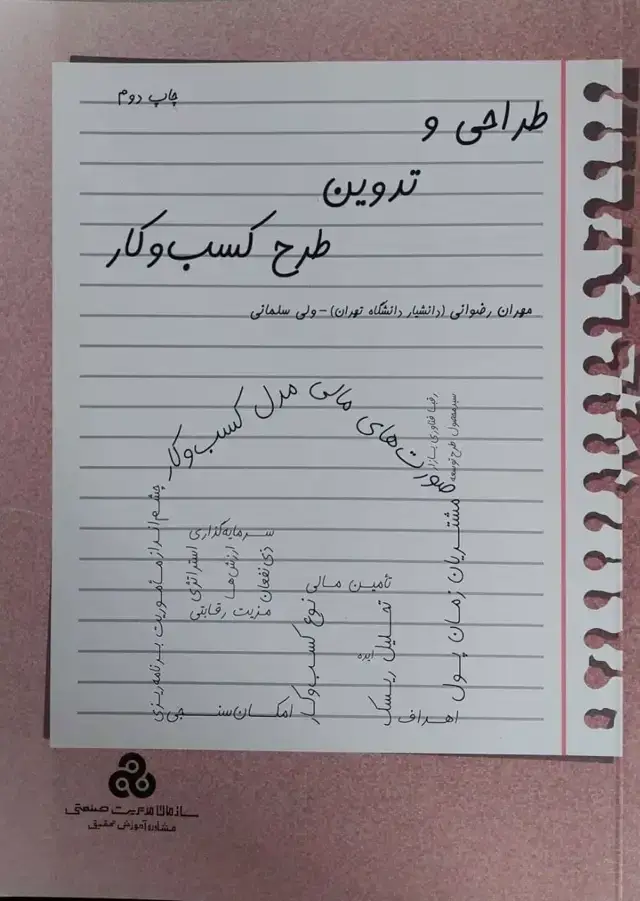 چاپ دوم
طراحی و
تدوین
طرح کسب‌وکار
مهران رضوانی (دانشیار دانشگاه تهران) - ولی سلمانی
صورت‌های مالی مدل کسب‌وکار
رقبا فناوری بازار
سیر محصول طرح توسعه
مشتریان زمان پول
چشم‌انداز ماموریت برنامه‌ریزی
سرمایه‌گذاری
استراتژی
ارزش‌ها
ذی‌نفعان
مزیت رقابتی
تأمین مالی
نوع کسب‌وکار
تحلیل ریسک
ایده
امکان‌سنجی
اهداف
سازمان مدیریت صنعتی
مشاوره آموزش تحقیق